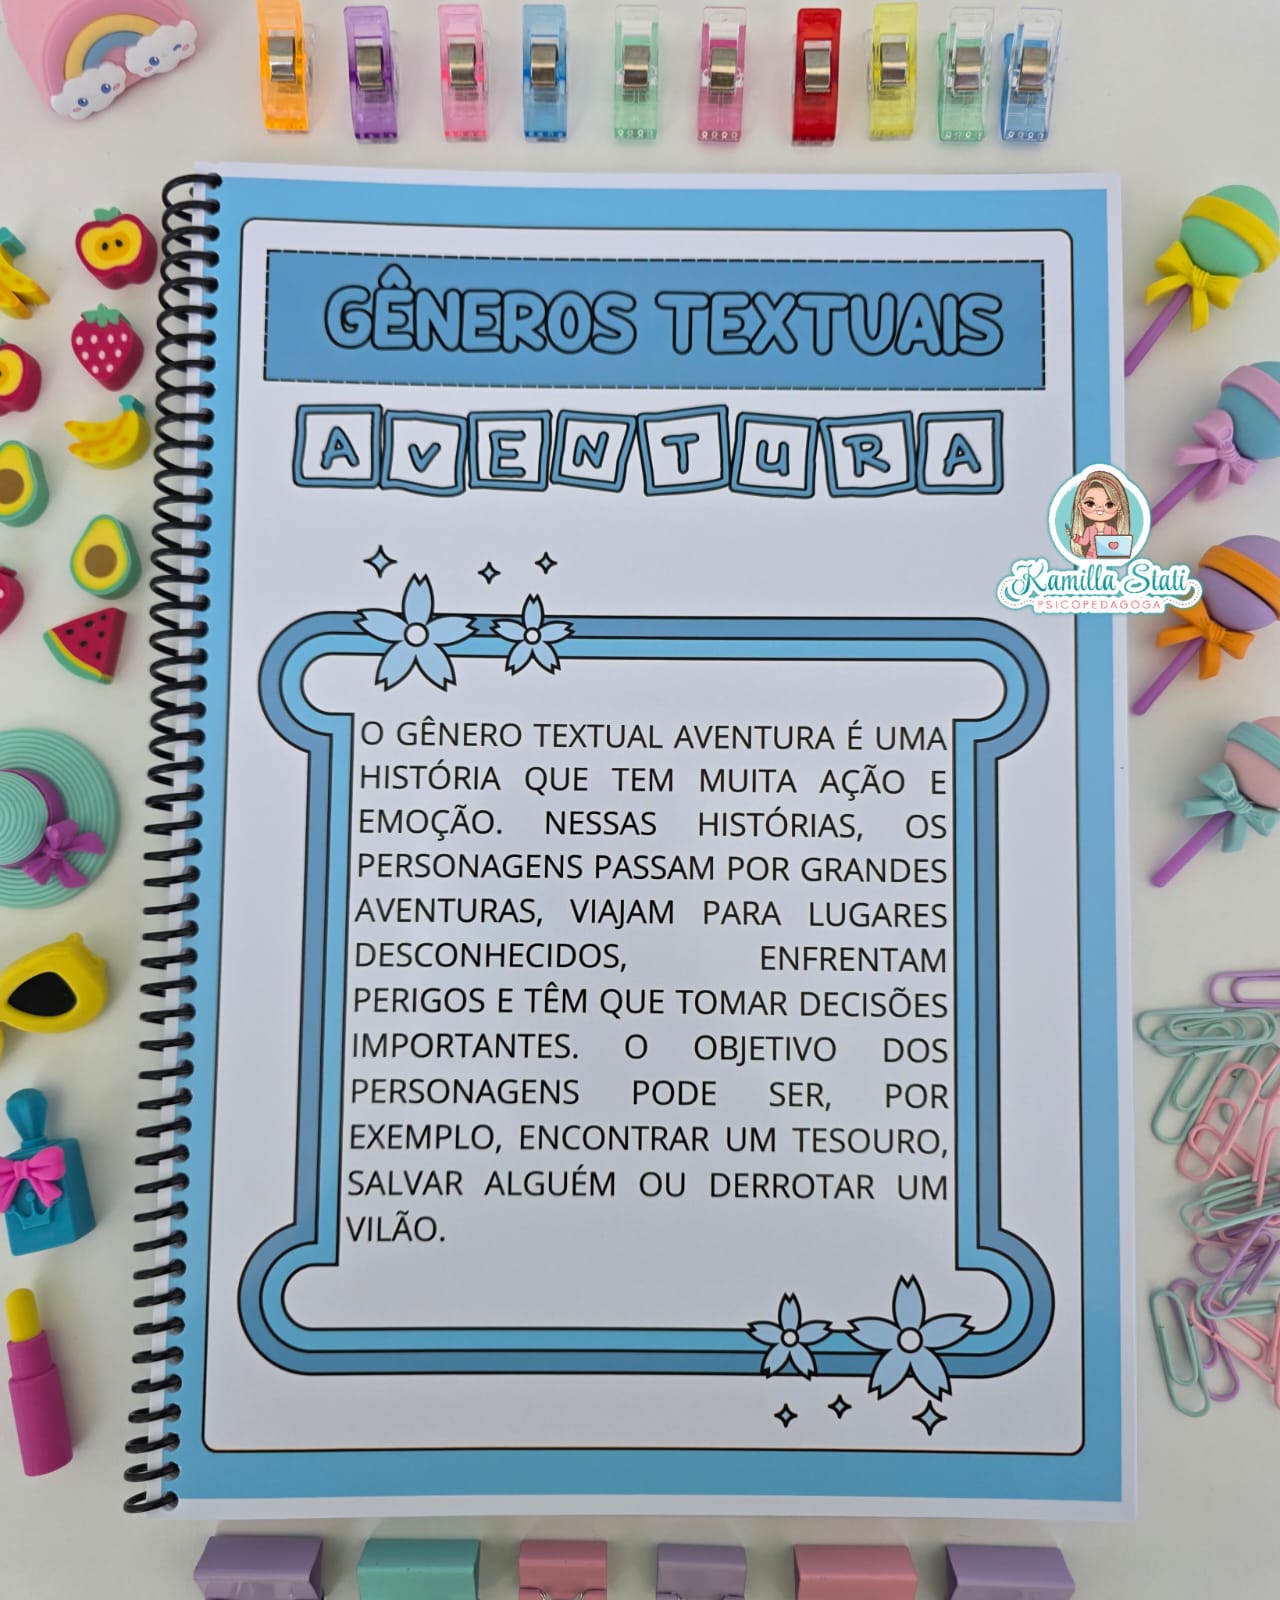 GÊNEROS TEXTUAIS
AVENTURA
Kamilla Stati
PSICOPEDAGOGA
O GÊNERO TEXTUAL AVENTURA É UMA
HISTÓRIA QUE TEM MUITA AÇÃO E
EMOÇÃO. NESSAS HISTÓRIAS, OS
PERSONAGENS PASSAM POR GRANDES
AVENTURAS, VIAJAM PARA LUGARES
DESCONHECIDOS, ENFRENTAM
PERIGOS E TÊM QUE TOMAR DECISÕES
IMPORTANTES. O OBJETIVO DOS
PERSONAGENS PODE SER, POR
EXEMPLO, ENCONTRAR UM TESOURO,
SALVAR ALGUÉM OU DERROTAR UM
VILÃO.